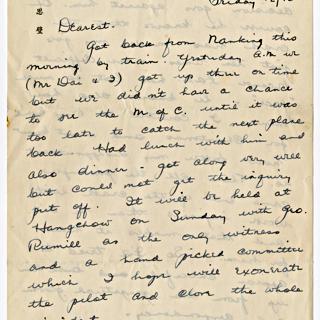 Friday
思
聖
Dearest.
Got back from Nanking this
morning by train. Yesterday a.m. we
(Mr Dai & I) got up there on time
but we didn't have a chance
to see the M. of C. until it was
too late to catch the next plane
back. Had lunch with him and
also dinner - got along very well
but could not get the inquiry
put off. It will be held at
Hangchow on Sunday with Geo.
Rumill as the only witness
and a hand picked committee
which I hope will exonerate
the pilot and close the whole